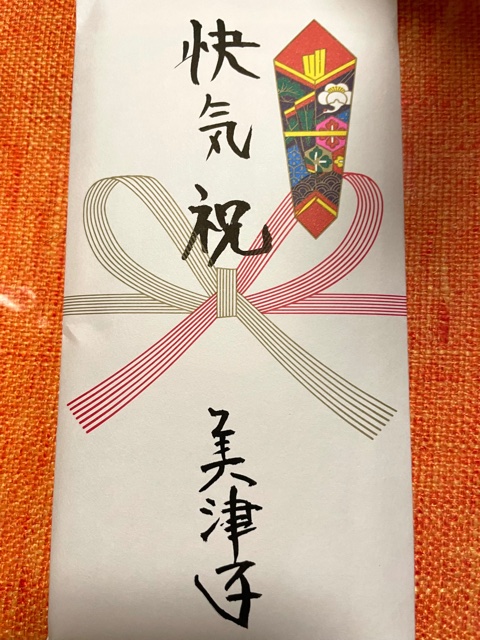 快気祝
美津子